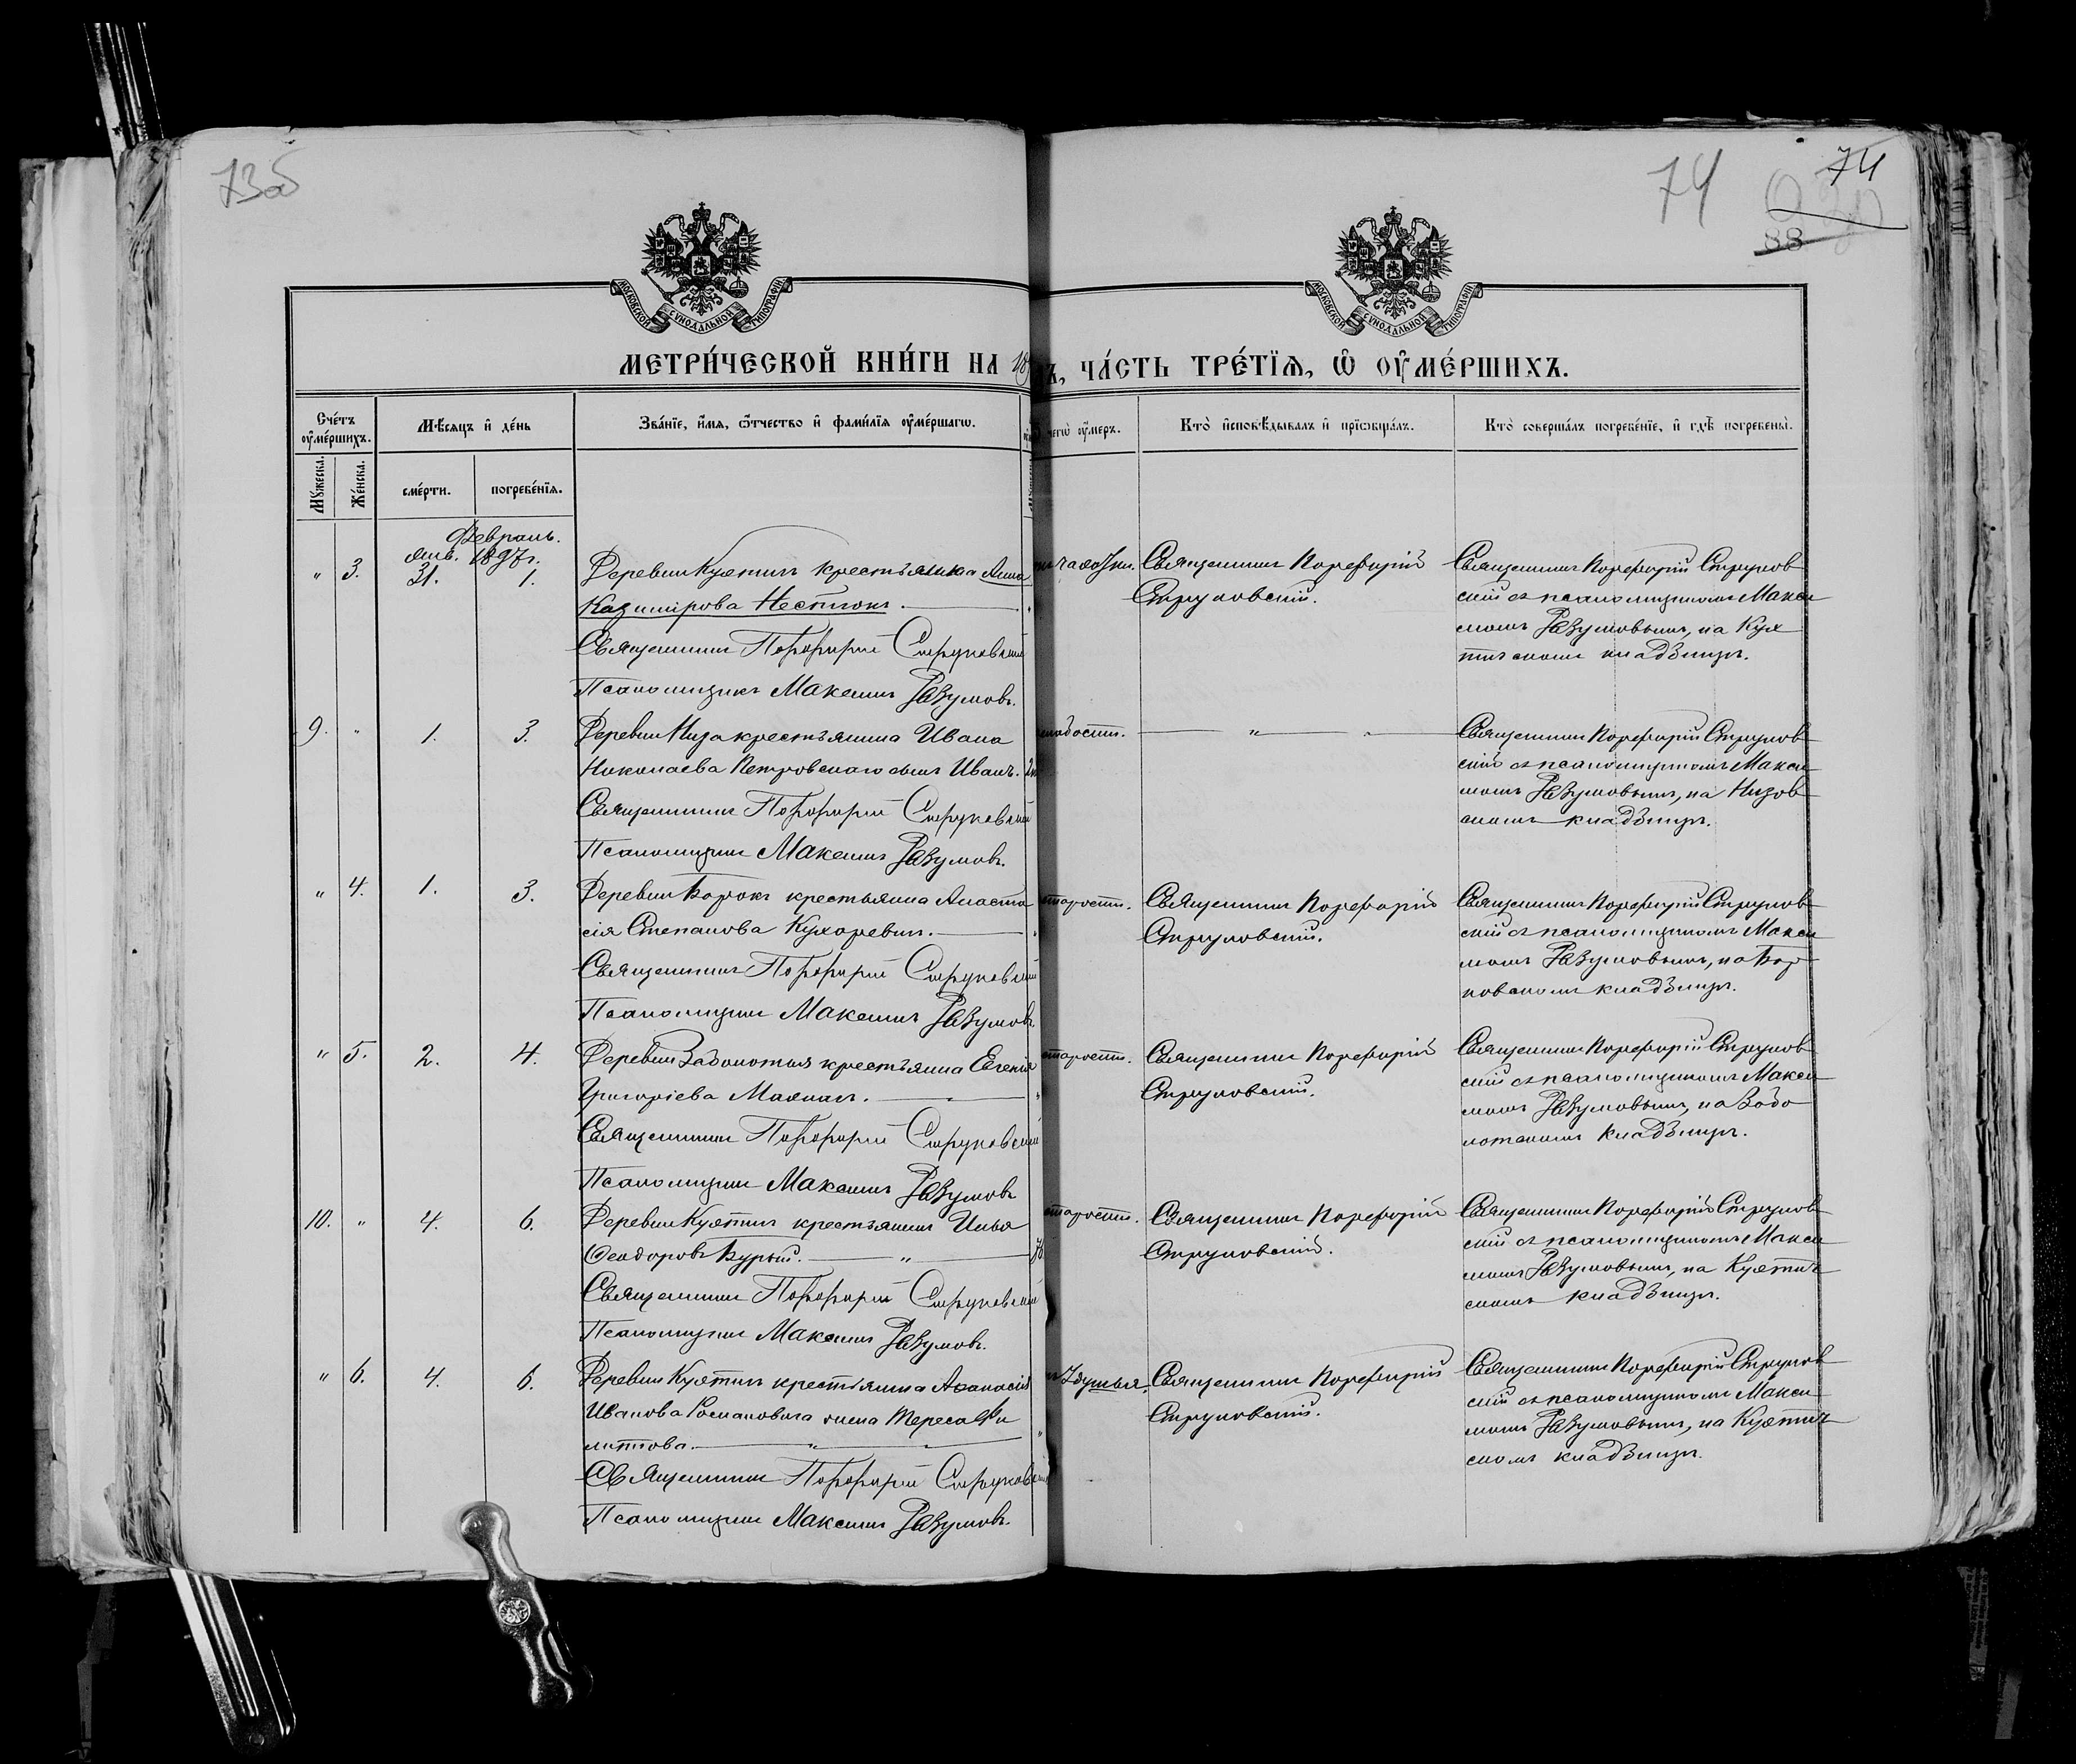 73об
74
74
88
МОСКОВСКОЙ СѴНОДАЛЬНОЙ ТИПОГРАФІИ
МОСКОВСКОЙ СѴНОДАЛЬНОЙ ТИПОГРАФІИ
МЕТРИ́ЧЕСКОЙ КНИ́ГИ НА 18
Ъ, ЧА́СТЬ ТРЕ́ТЇѦ, Ѡ ОУМЕ́РШИХЪ.
Сче́тъ оуме́ршихъ.
Мѣ́сяцъ и де́нь
Зва́нїе, и́мя, ѻ́тчество и фами́лїя оуме́ршагѡ.
чегѡ̀ оу́меръ.
Кто̀ исповѣ́дывалъ и прїѡбща́лъ.
Кто̀ соверша́лъ погребе́нїе, и гдѣ̀ погребены̀.
Мꙋ́жеска.
Же́нска.
сме́рти.
погребе́нїя.
Февраль.
янв. 1897г.
" 3. 31. 1. Деревни Кухтичъ крестьянка Анна
Казимірова Нестюкъ.
Священникъ Порфирій Струковскій
Псаломщикъ Максимъ Разумовъ.
чахотки.
Священникъ Порфирій
Струковскій.
Священникъ Порфирій Струков
скій съ псаломщикомъ Макси
момъ Разумовымъ, на Кух
тичскомъ кладбищѣ.
9. " 1. 3. Деревни Низа крестьянина Ивана
Николаева Петровскаго сынъ Иванъ.
Священникъ Порфирій Струковскій
Псаломщикъ Максимъ Разумовъ.
слабости.
" "
Священникъ Порфирій Струков
скій съ псаломщикомъ Макси
момъ Разумовымъ, на Низов
скомъ кладбищѣ.
" 4. 1. 3. Деревни Борокъ крестьянка Анаста
сія Степанова Кухаревич.
Священникъ Порфирій Струковскій
Псаломщикъ Максимъ Разумовъ.
старости.
Священникъ Порфирій
Струковскій.
Священникъ Порфирій Струков
скій съ псаломщикомъ Макси
момъ Разумовымъ, на Бор
ковскомъ кладбищѣ.
" 5. 2. 4. Деревни Заболотья крестьянка Евгенія
Григоріева
Священникъ Порфирій Струковскій
Псаломщикъ Максимъ Разумовъ
старости.
Священникъ Порфирій
Струковскій.
Священникъ Порфирій Струков
скій съ псаломщикомъ Макси
момъ Разумовымъ, на Забо
лотскомъ кладбищѣ.
10. " 4. 6. Деревни Кухтичъ крестьянинъ Илья
Ѳеодоровъ Курый. "
Священникъ Порфирій Струковскій
Псаломщикъ Максимъ Разумовъ.
старости.
Священникъ Порфирій
Струковскій.
Священникъ Порфирій Струков
скій съ псаломщикомъ Макси
момъ Разумовымъ, на Кухтич
скомъ кладбищѣ.
" 6. 4. 6. Деревни Кухтичъ крестьянина Аѳанасія
Иванова Романовича жена Тереса Фи
липпова. " "
Священникъ Порфирій Струковскій
Псаломщикъ Максимъ Разумовъ.
удушья.
Священникъ Порфирій
Струковскій.
Священникъ Порфирій Струков
скій съ псаломщикомъ Макси
момъ Разумовымъ, на Кухтич
скомъ кладбищѣ.